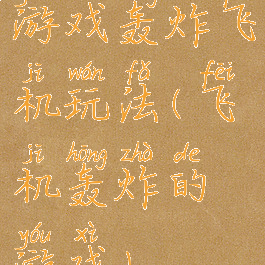 游戏轰炸飞
jī wán fǎ fēi
机玩法(飞
jī hōng zhà de
机轰炸的
yóu xì
游戏)